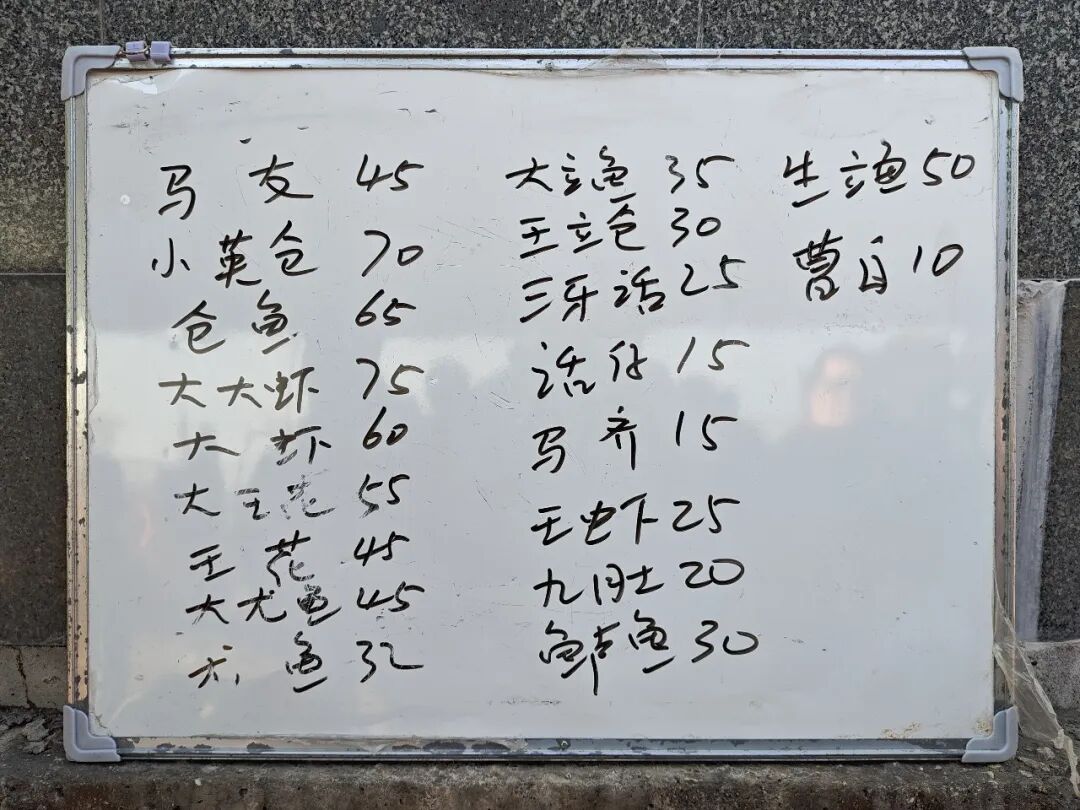 马友 45
小英仓 70
仓鱼 65
大大虾 75
大虾 60
大王花 55
王花 45
大尤鱼 45
尤鱼 32
大立鱼 35
王立仓 30
三牙话 25
话仔 15
马齐 15
王虾 25
九肚 20
鱼 30
生立鱼 50
曹白 10